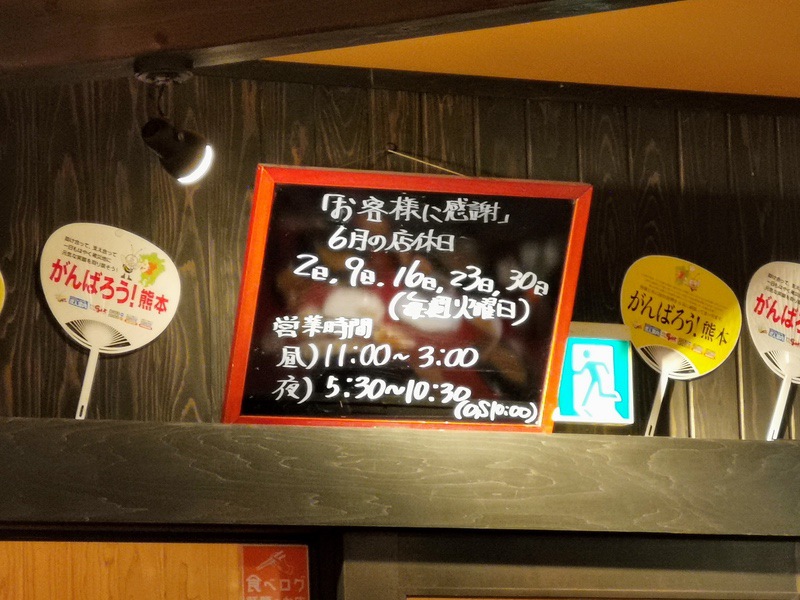 「お客様に感謝」
6月の店休日
2日,9日,16日,23日,30日
(毎週火曜日)
営業時間
昼)11:00〜3:00
夜)5:30〜10:30
(OS10:00)
がんばろう!熊本
がんばろう!熊本
がんば
食べログ